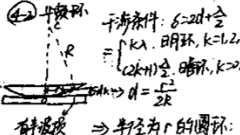 ④-2 牛顿环
干涉条件: δ=2d+λ/2
= { kλ, 明环, k=1,2,
(2k+1)λ/2, 暗环, k=0,
R
d = r²/2R
有半波损 ⇒ 半径为r的圆环: